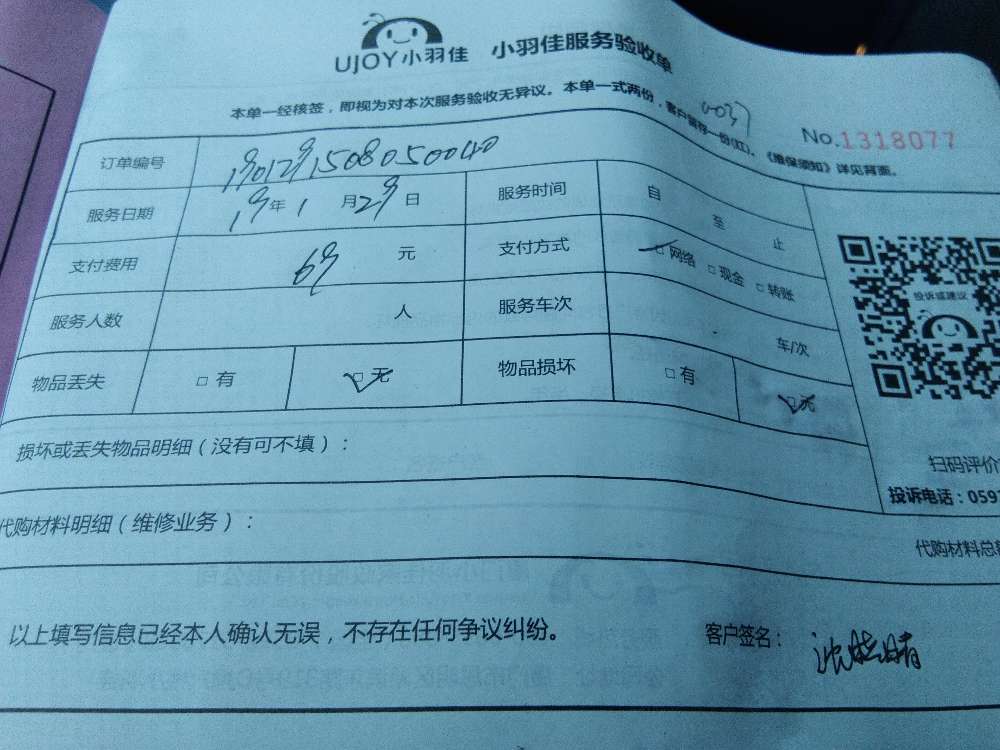 UJOY小羽佳 小羽佳服务验收单
本单一经核签，即视为对本次服务验收无异议。本单一式两份，客户留存一份(红)。《维保须知》详见背面。
0037
No.1318077
订单编号 1901291508050040
服务日期 19年1月29日 服务时间 自 至 止
支付费用 69元 支付方式 □网络 □现金 □转账
服务人数 人 服务车次 车/次
物品丢失 □有 □无 物品损坏 □有 □无
投诉或建议
扫码评价
投诉电话：059
损坏或丢失物品明细（没有可不填）：
代购材料明细（维修业务）：
代购材料总
以上填写信息已经本人确认无误，不存在任何争议纠纷。 客户签名：